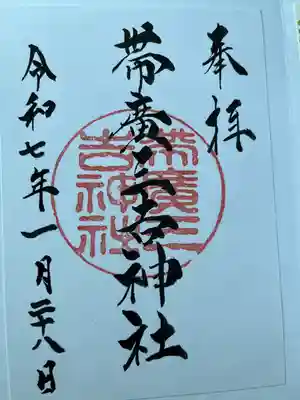 奉拝
帯廣三吉神社
令和七年一月二十八日
帯廣三吉神社